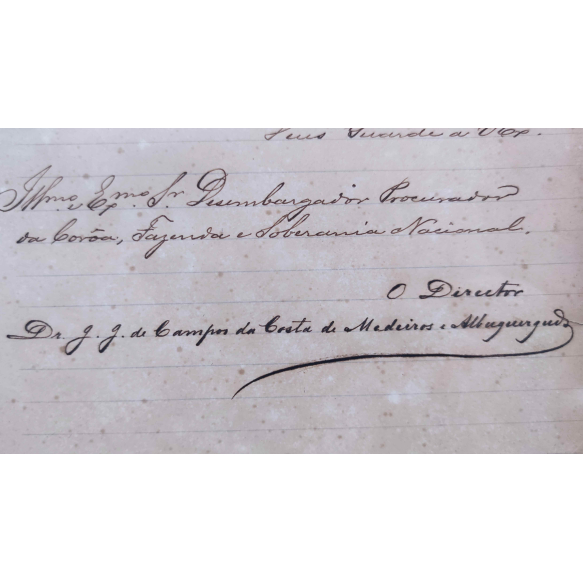 Deus Guarde a V Ex.
Illmo. e Exmo. Sr Desembargador Procurador
da Corôa, Fazenda e Soberania Nacional.
O Director
Dr. J. J. de Campos da Costa de Medeiros e Albuquerque